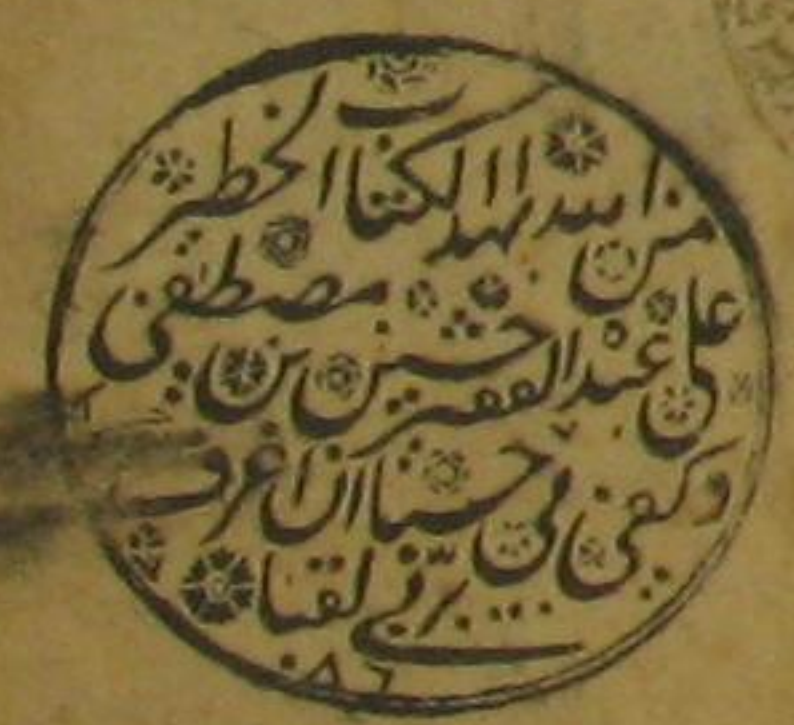 من الله بهذا الكتاب الخطير
على عبده الفقير حسين بن مصطفى
وكفى بي حسبا ان اعرف
بربي لقبا
٠٨٦